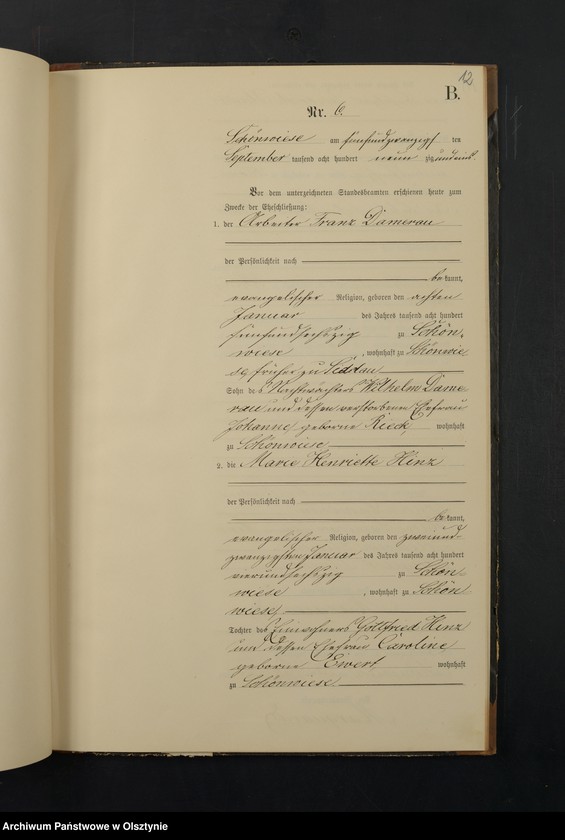 12
B.
Nr. 6.
Schönwiese am fünfundzwanzigsten
September tausend acht hundert neunzig und eins.
Vor dem unterzeichneten Standesbeamten erschienen heute zum
Zwecke der Eheschließung:
1. der Arbeiter Franz Damerau
der Persönlichkeit nach
bekannt,
evangelischer Religion, geboren den achten
Januar des Jahres tausend acht hundert
fünfundsechszig zu Schön-
wiese, wohnhaft zu Schönwie
se, früher zu
Sohn des Nachtwächters Wilhelm Dame
rau und dessen verstorbenen Ehefrau
Johanne, geborne Rieck, wohnhaft
zu Schönwiese
2. die Marie Henriette Hinz
der Persönlichkeit nach
bekannt,
evangelischer Religion, geboren den zweiund-
zwanzigsten Januar des Jahres tausend acht hundert
vierundsechszig zu Schön-
wiese, wohnhaft zu Schön
wiese,
Tochter des Einwohners Gottfried Hinz
und dessen Ehefrau Caroline
geborne Ewert, wohnhaft
zu Schönwiese
Archiwum Państwowe w Olsztynie